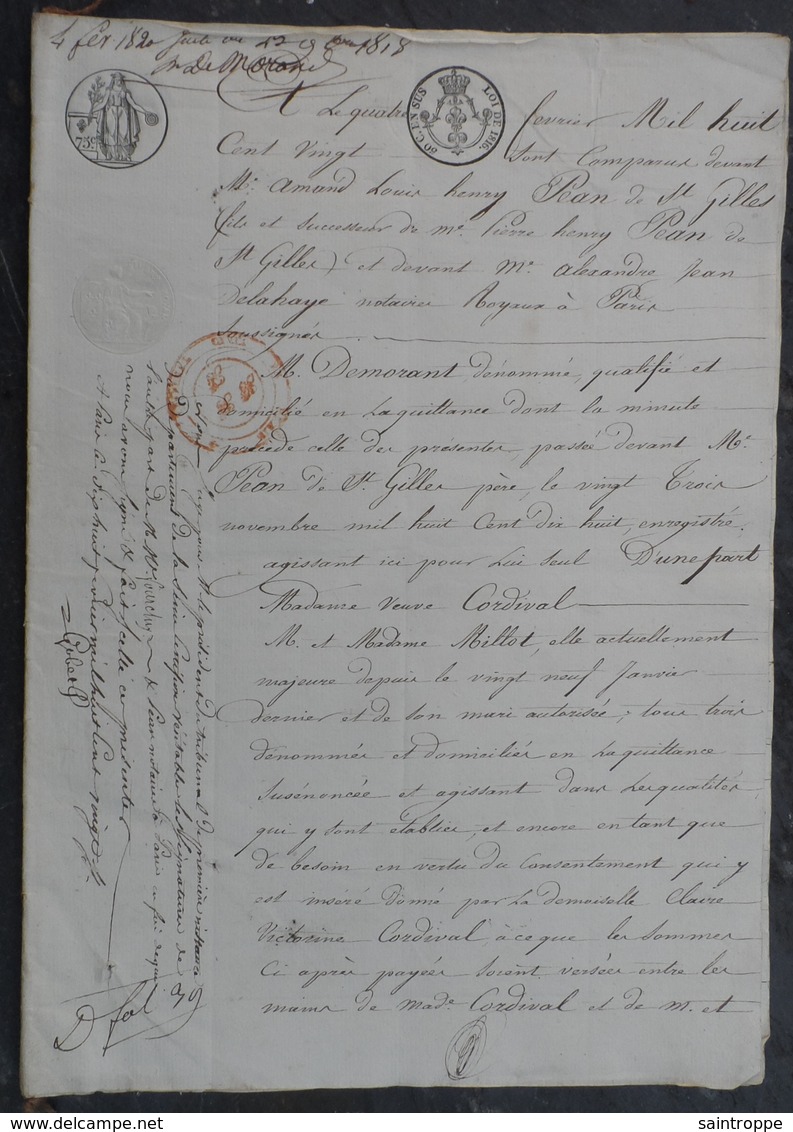 4 fév. 1820 Suite au 23 9bre 1818
Mr De Morand
75c
50 C. EN SUS
LOI DE 1816.
Le quatre février Mil huit
Cent Vingt Sont Comparus devant
Me. Amand Louis henry Péan de St Gilles
(fils et Successeur de me. Pierre henry Péan de
St Gilles) et devant Me. alexandre Jean
Delahaye notaires Royaux à Paris
Soussignés
M. Demorant dénommé, qualifié et
domicilié en la quittance dont la minute
précède celle des présentes, passée devant Me.
Péan de St. Gilles père, le vingt Trois
novembre mil huit Cent dix huit, enregistré.
agissant ici pour Lui Seul D'une part
Madame Veuve Cordival
M. et Madame Millot, elle actuellement
majeure depuis le vingt neuf Janvier
dernier et de Son mari autorisée, tous trois
dénommés et domiciliés en la quittance
Susénoncée et agissant dans les qualités
qui y Sont établies, et encore en tant que
de besoin en vertu du Consentement qui y
est inséré donné par la demoiselle Claire
Victorine Cordival, à ce que les Sommes
Ci après payées Soient versées entre les
mains de made. Cordival et de m. et
le président du tribunal de première instance
Département de la Seine
de Me
notaires à Paris en foi de quoi
nous avons signé & fait sceller ces présentes
à Paris le dix huit
fol